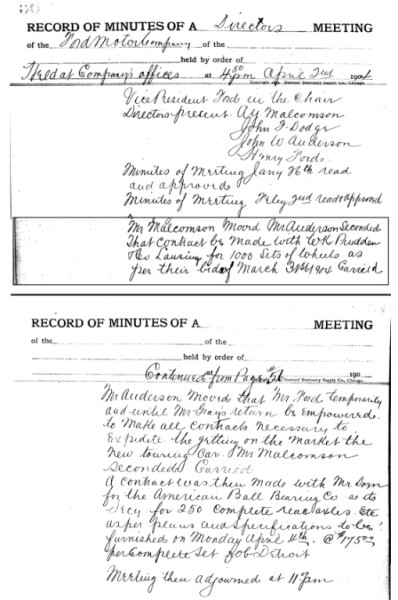 RECORD OF MINUTES OF A Directors MEETING
of the Ford Motor Company of the
held by order of
Held at Company's offices at 4 50 pm April 2nd 1904
Vice President Ford in the Chair
Directors present A Y Malcomson
John F Dodge
John W Anderson
Henry Ford
Minutes of Meeting Jany 26th read
and approved
Minutes of Meeting Feby 2nd read & approved
Mr Malcomson Moved Mr Anderson Seconded
That contract be Made with W K Prudden
& Co Lansing for 1000 Sets of Wheels as
per their bid of March 31st 1904 Carried
RECORD OF MINUTES OF A MEETING
of the of the
held by order of
Continued from Page 56 190
Mr Anderson Moved that Mr Ford temporarily
and until Mr Gray's return be Empowered
to Make all contracts necessary to
Expidite the getting on the Market the
New touring Car Mr Malcomson
Seconded Carried
A contract was then Made with Mr
for the American Ball Bearing Co as its
Secy for 250 Complete rear axles Etc
as per plans and Specifications to be
furnished on Monday April 4th @ $175 00
per Complete Set fob Detroit
Meeting then adjourned at 11 pm